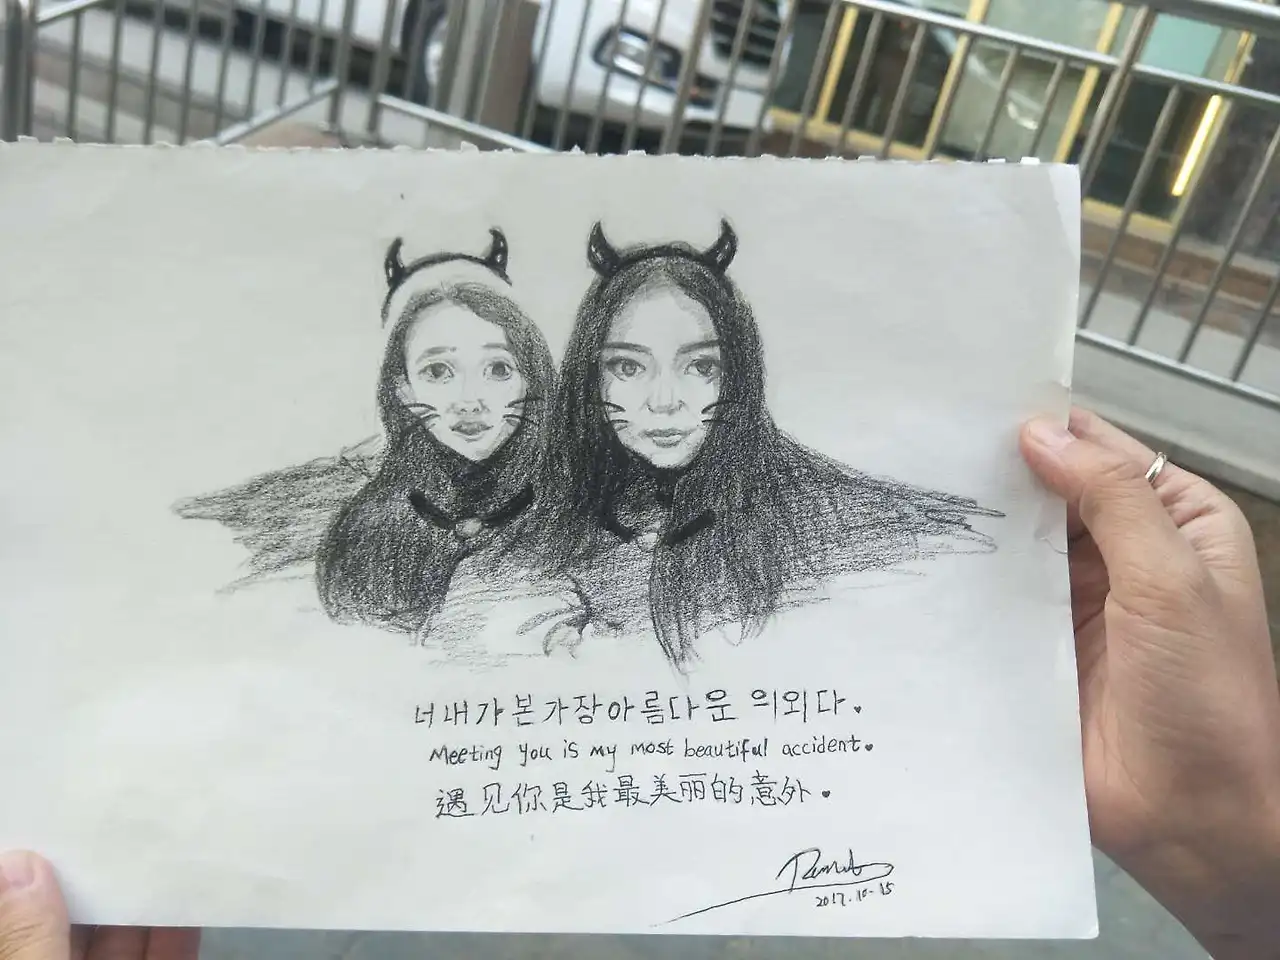 너 내가 본 가장 아름다운 의외다.
Meeting you is my most beautiful accident.
遇见你是我最美丽的意外.
2017.10-15